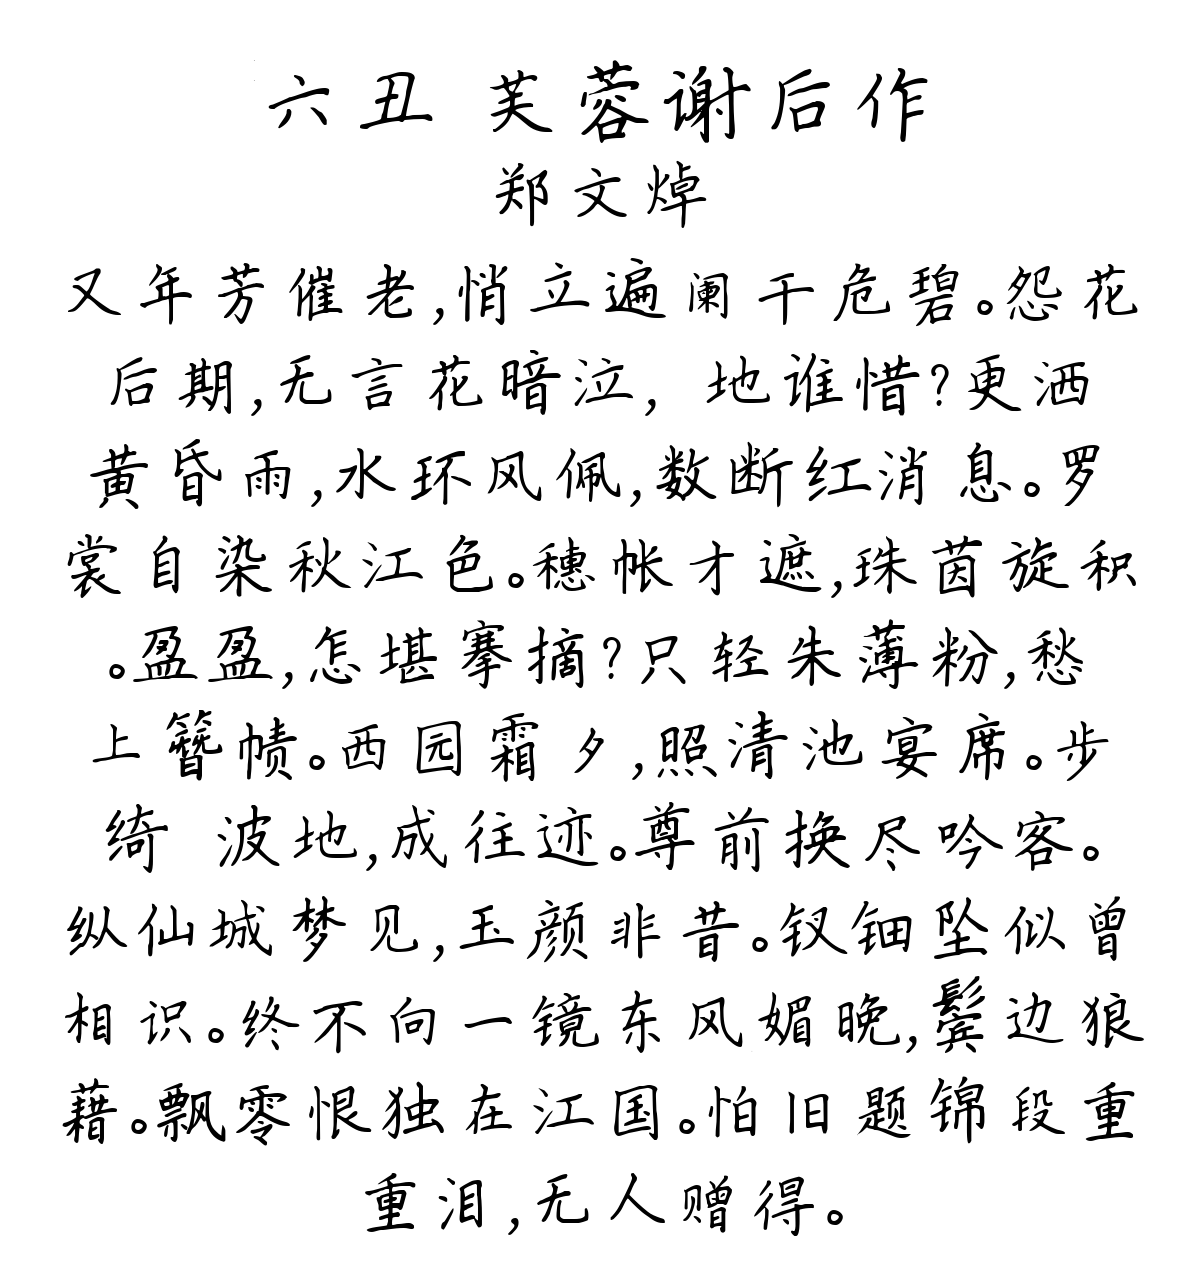 六丑 芙蓉谢后作
郑文焯
又年芳催老,悄立遍阑干危碧。怨花
后期,无言花暗泣, 地谁惜?更洒
黄昏雨,水环风佩,数断红消息。罗
裳自染秋江色。穗帐才遮,珠茵旋积
。盈盈,怎堪搴摘?只轻朱薄粉,愁
上簪帻。西园霜夕,照清池宴席。步
绮 波地,成往迹。尊前换尽吟客。
纵仙城梦见,玉颜非昔。钗钿坠似曾
相识。终不向一镜东风媚晚,鬓边狼
藉。飘零恨独在江国。怕旧题锦段重
重泪,无人赠得。